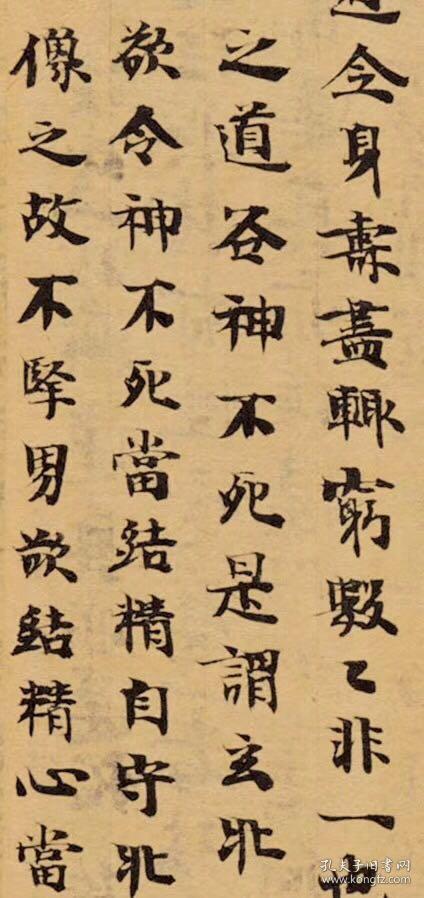 全身壽盡輒窮數〻非一
之道谷神不死是謂玄牝
欲令神不死當結精自守牝
像之故不掔男欲結精心當
孔夫子旧书网
www.kongfz.com